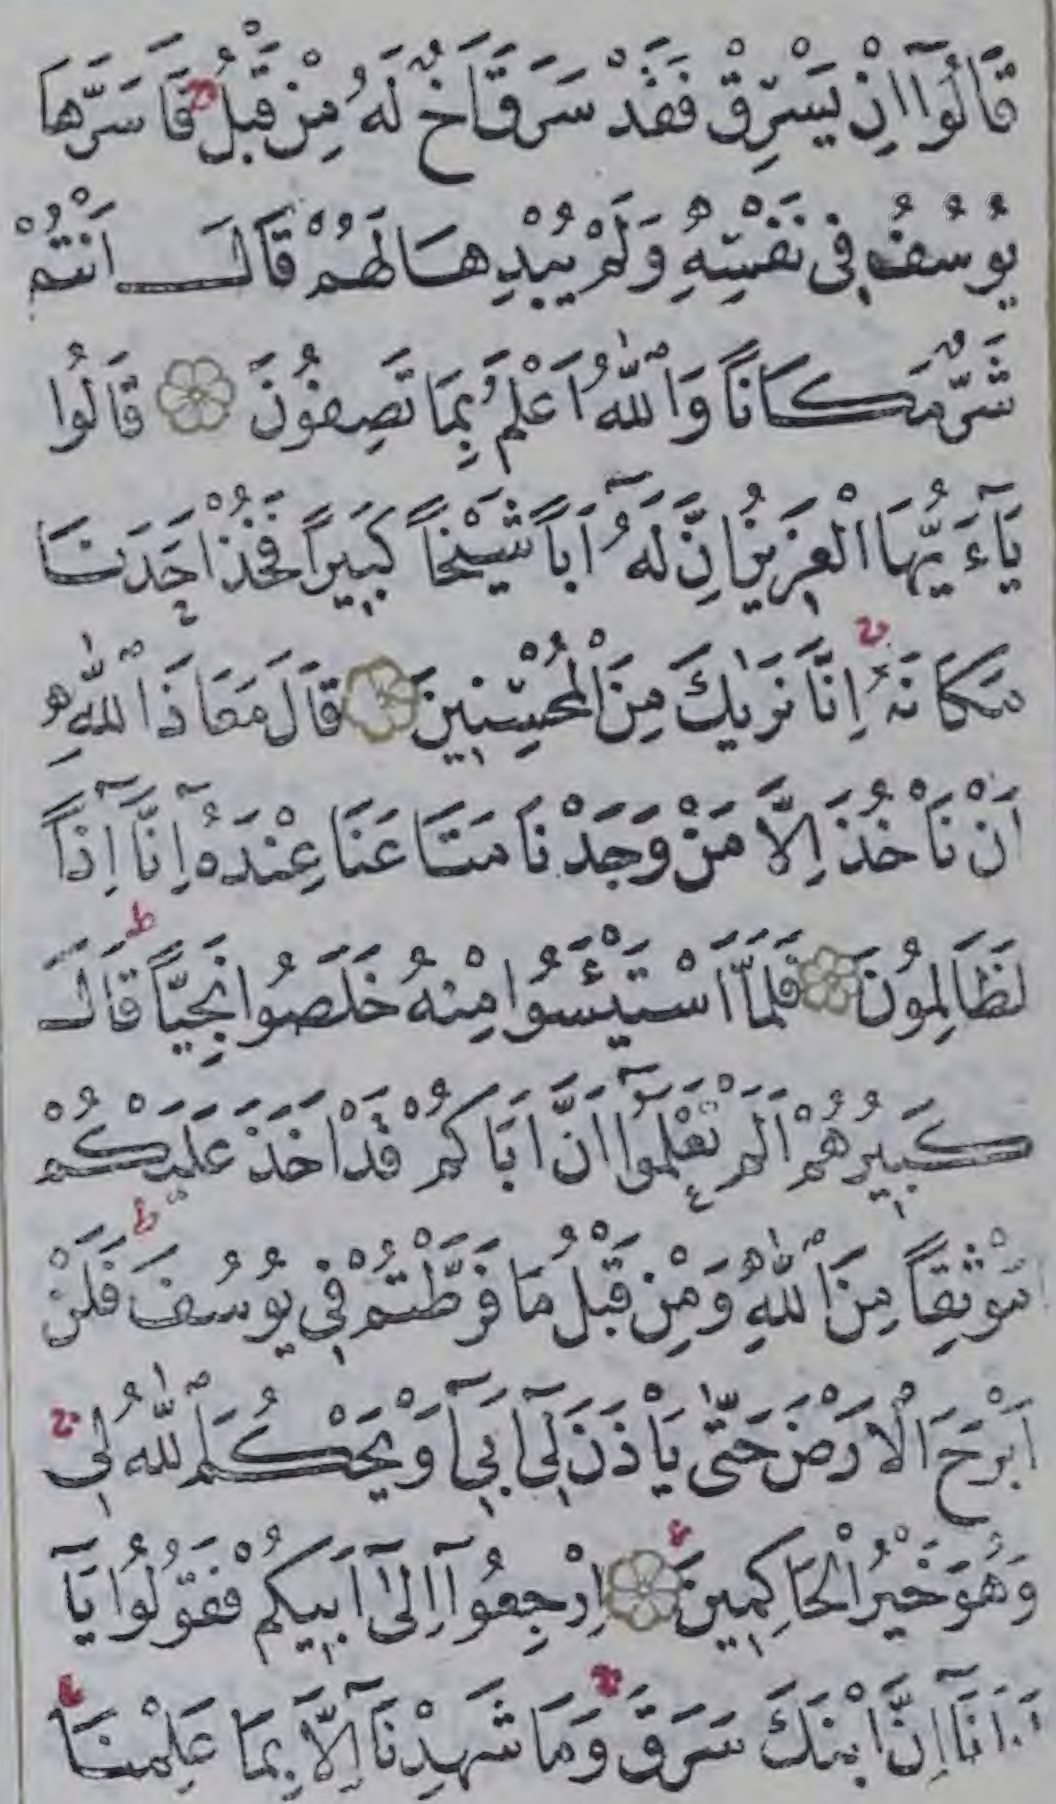 قَالُوٓا اِنْ يَسْرِقْ فَقَدْ سَرَقَ اَخٌ لَهُ مِنْ قَبْلُ فَاَسَرَّهَا
يُوسُفُ فِى نَفْسِهِ وَلَمْ يُبْدِهَا لَهُمْ قَالَ اَنْتُمْ
شَرٌّ مَكَانًا وَاللّٰهُ اَعْلَمُ بِمَا تَصِفُونَ قَالُوا
يَآءَيُّهَا الْعَزِيزُ اِنَّ لَهُٓ اَبًا شَيْخًا كَبِيرًا فَخُذْ اَحَدَنَا
مَكَانَهُ اِنَّا نَرٰيكَ مِنَ الْمُحْسِنِينَ قَالَ مَعَاذَ اللّٰهِ
اَنْ نَاْخُذَ اِلَّا مَنْ وَجَدْنَا مَتَاعَنَا عِنْدَهُٓ اِنَّٓا اِذًا
لَظَالِمُونَ فَلَمَّا اسْتَيْـَٔسُوا مِنْهُ خَلَصُوا نَجِيًّا قَالَ
كَبِيرُهُمْ اَلَمْ تَعْلَمُوٓا اَنَّ اَبَاكُمْ قَدْ اَخَذَ عَلَيْكُمْ
مَوْثِقًا مِنَ اللّٰهِ وَمِنْ قَبْلُ مَا فَرَّطْتُمْ فِى يُوسُفَ فَلَنْ
اَبْرَحَ الْاَرْضَ حَتّٰى يَاْذَنَ لِٓى اَبِٓى اَوْ يَحْكُمَ اللّٰهُ لِى
وَهُوَ خَيْرُ الْحَاكِمِينَ اِرْجِعُوٓا اِلٰٓى اَبِيكُمْ فَقُولُوا يَٓا
اَبَانَٓا اِنَّ ابْنَكَ سَرَقَ وَمَا شَهِدْنَٓا اِلَّا بِمَا عَلِمْنَا